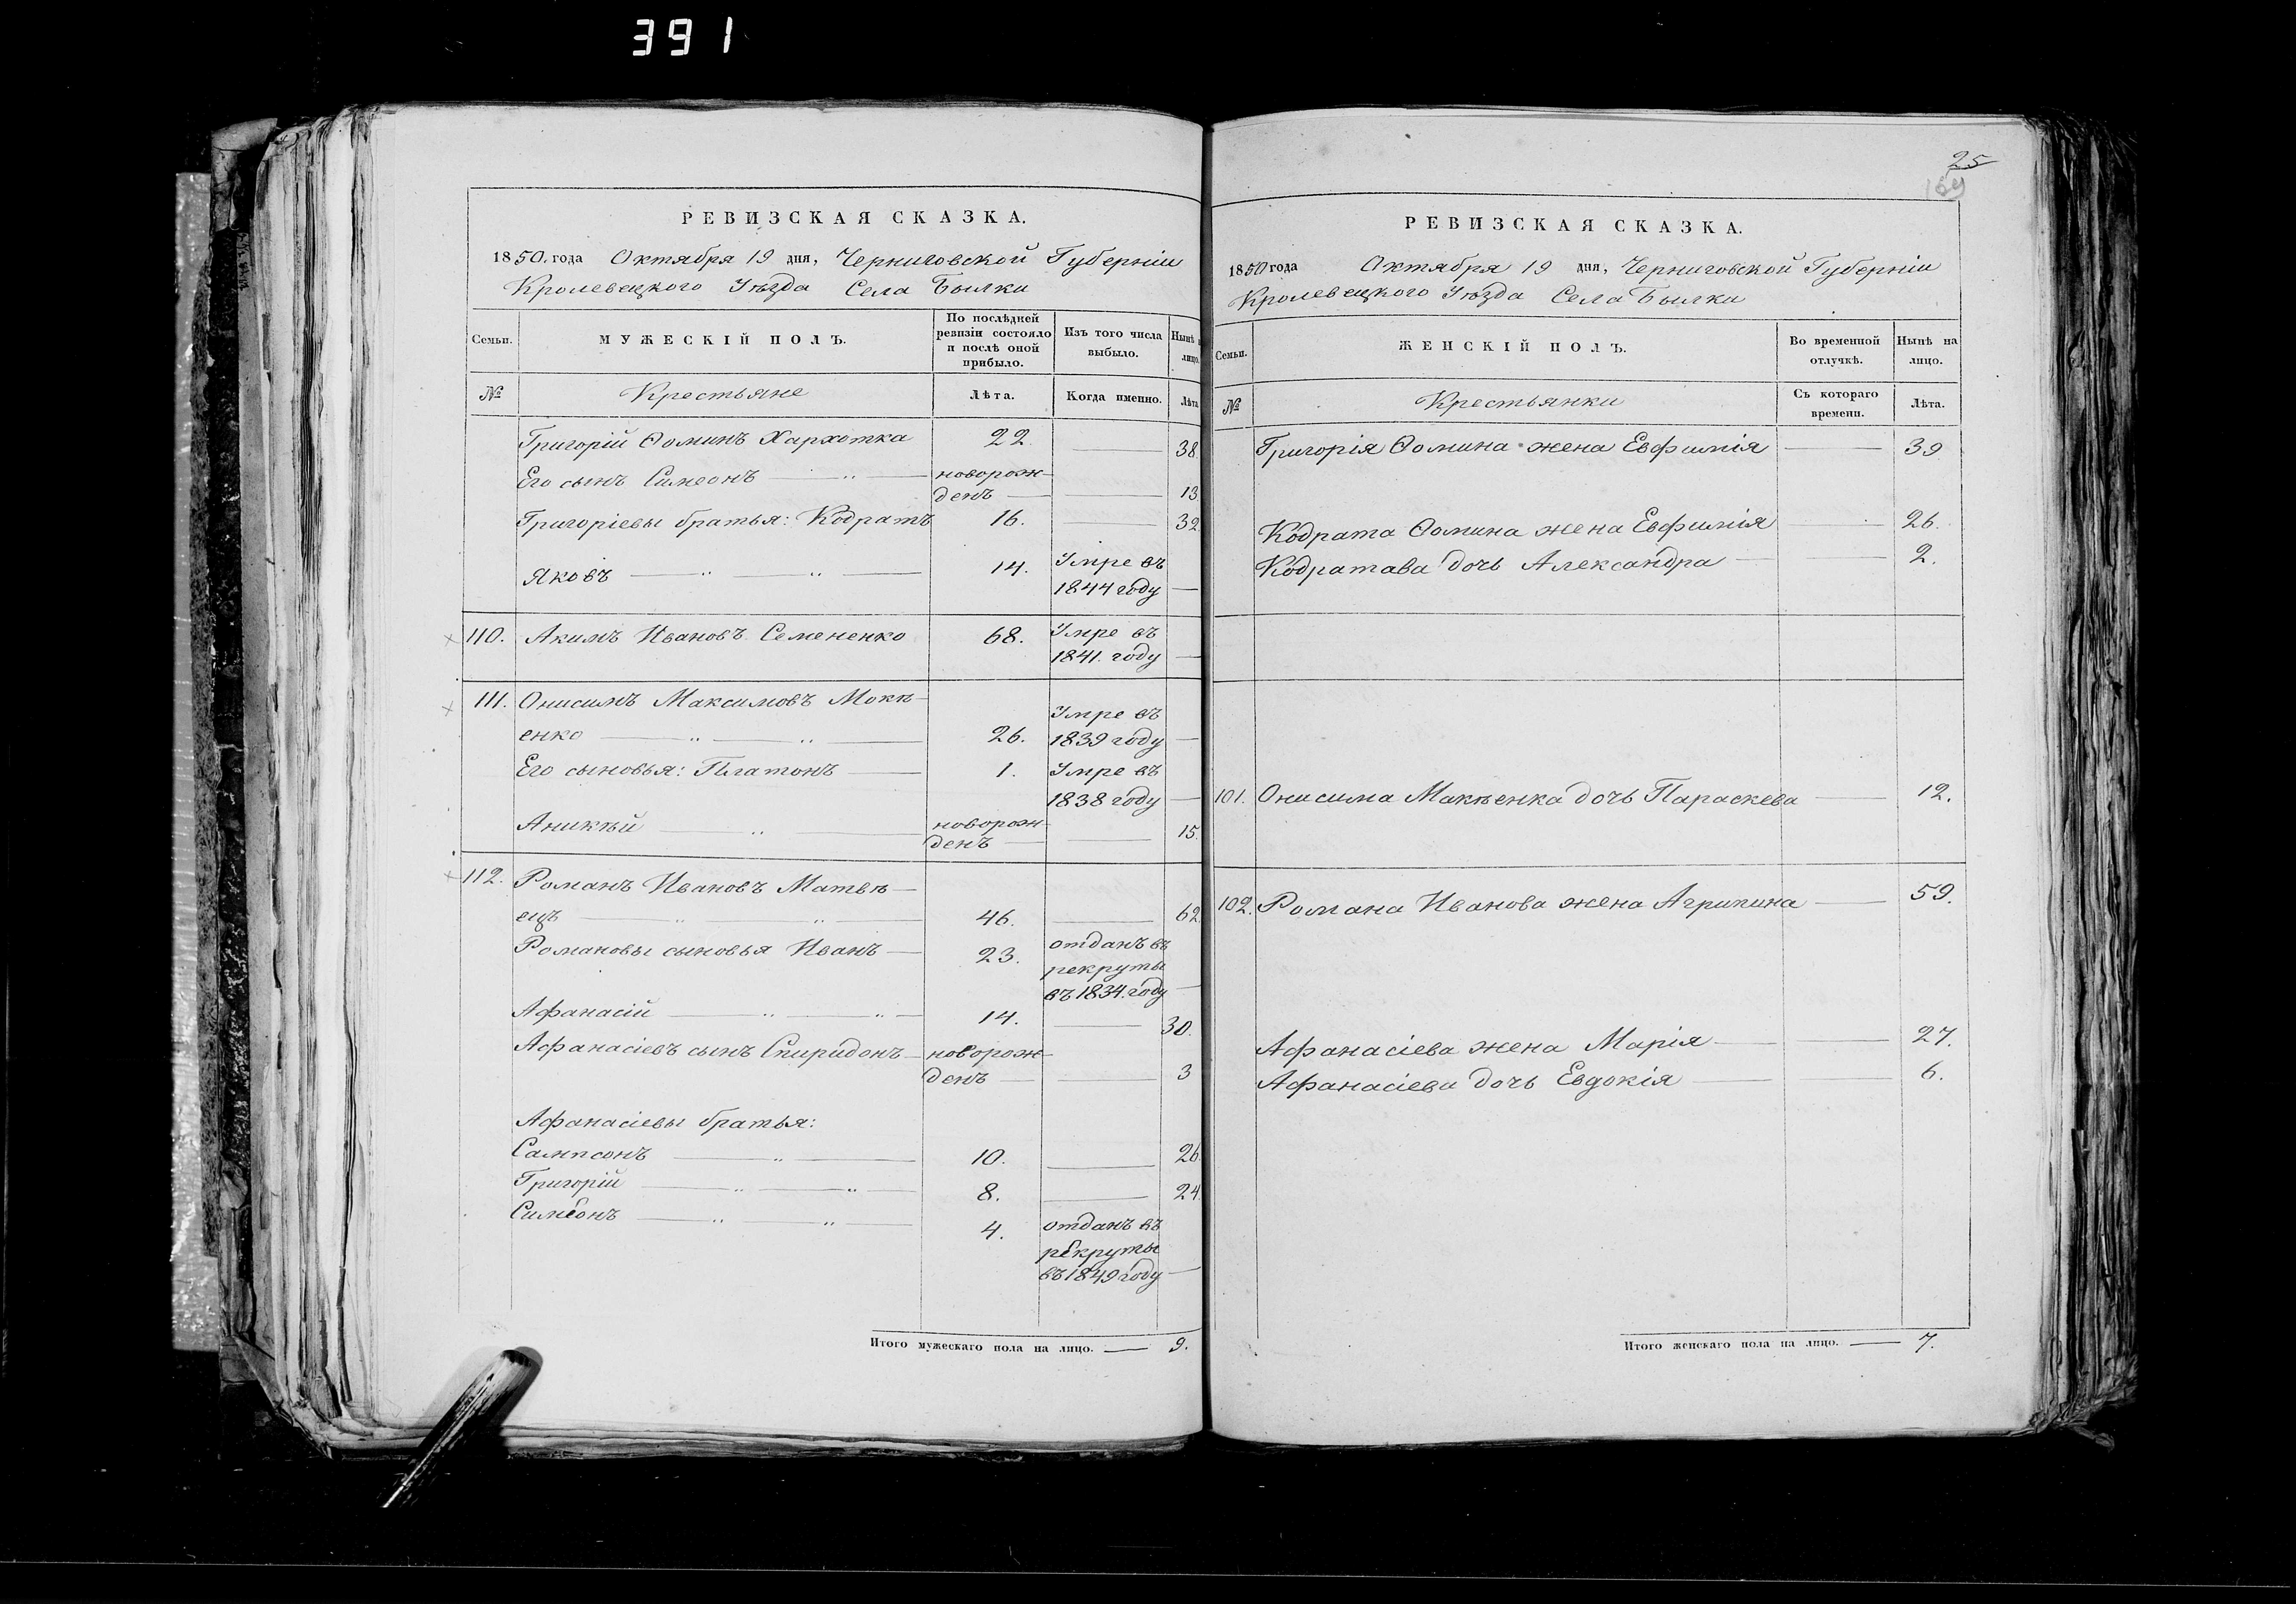 391
РЕВИЗСКАЯ СКАЗКА.
1850 года Октября 19 дня, Черниговской Губерніи
Кролевецкого Уѣзда Села Былки
Семьи. МУЖЕСКІЙ ПОЛЪ. По послѣдней ревизіи состояло и послѣ оной прибыло. Изъ того числа выбыло. Нынѣ на лицо.
№ Крестьяне Лѣта. Когда именно. Лѣта
Григорій Ѳоминъ Хархотка 22 38.
Его сынъ Симеонъ новорож-
денъ 13.
Григоріевы братья: Кодратъ 16. 32
Яковъ 14. Умре въ
1844 году
110. Акимъ Ивановъ Семененко 68. Умре въ
1841. году
111. Онисимъ Максимовъ Мокѣ-
енко 26. Умре въ
1839 году
Его сыновья: Платонъ 1. Умре въ
1838 году
Аникѣй новорож-
денъ 15.
112. Романъ Ивановъ Матвѣ-
ецъ 46. 62
Романовы сыновья Иванъ 23. отданъ въ
рекруты
въ 1834. году
Афанасій 14. 30.
Афанасіевъ сынъ Спиридонъ новорож-
денъ 3
Афанасіевы братья:
Сампсонъ 10. 26.
Григорій 8. 24.
Симеонъ 4. отданъ въ
рекруты
въ 1849 году
Итого мужескаго пола на лицо. 9.
25
169
РЕВИЗСКАЯ СКАЗКА.
1850 года Октября 19 дня, Черниговской Губерніи
Кролевецкого Уѣзда Села Былки
Семьи. ЖЕНСКІЙ ПОЛЪ. Во временной отлучкѣ. Нынѣ на лицо.
№ Крестьянки Съ котораго времени. Лѣта.
Григорія Ѳомина жена Евфимія 39
Кодрата Ѳомина жена Евфимія 26.
Кодратава дочь Александра 2.
101. Онисима Макѣенка дочь Параскева 12.
102. Романа Иванова жена Агрипина 59.
Афанасіева жена Марія 27.
Афанасіева дочь Евдокія 6.
Итого женскаго пола на лицо. 7.